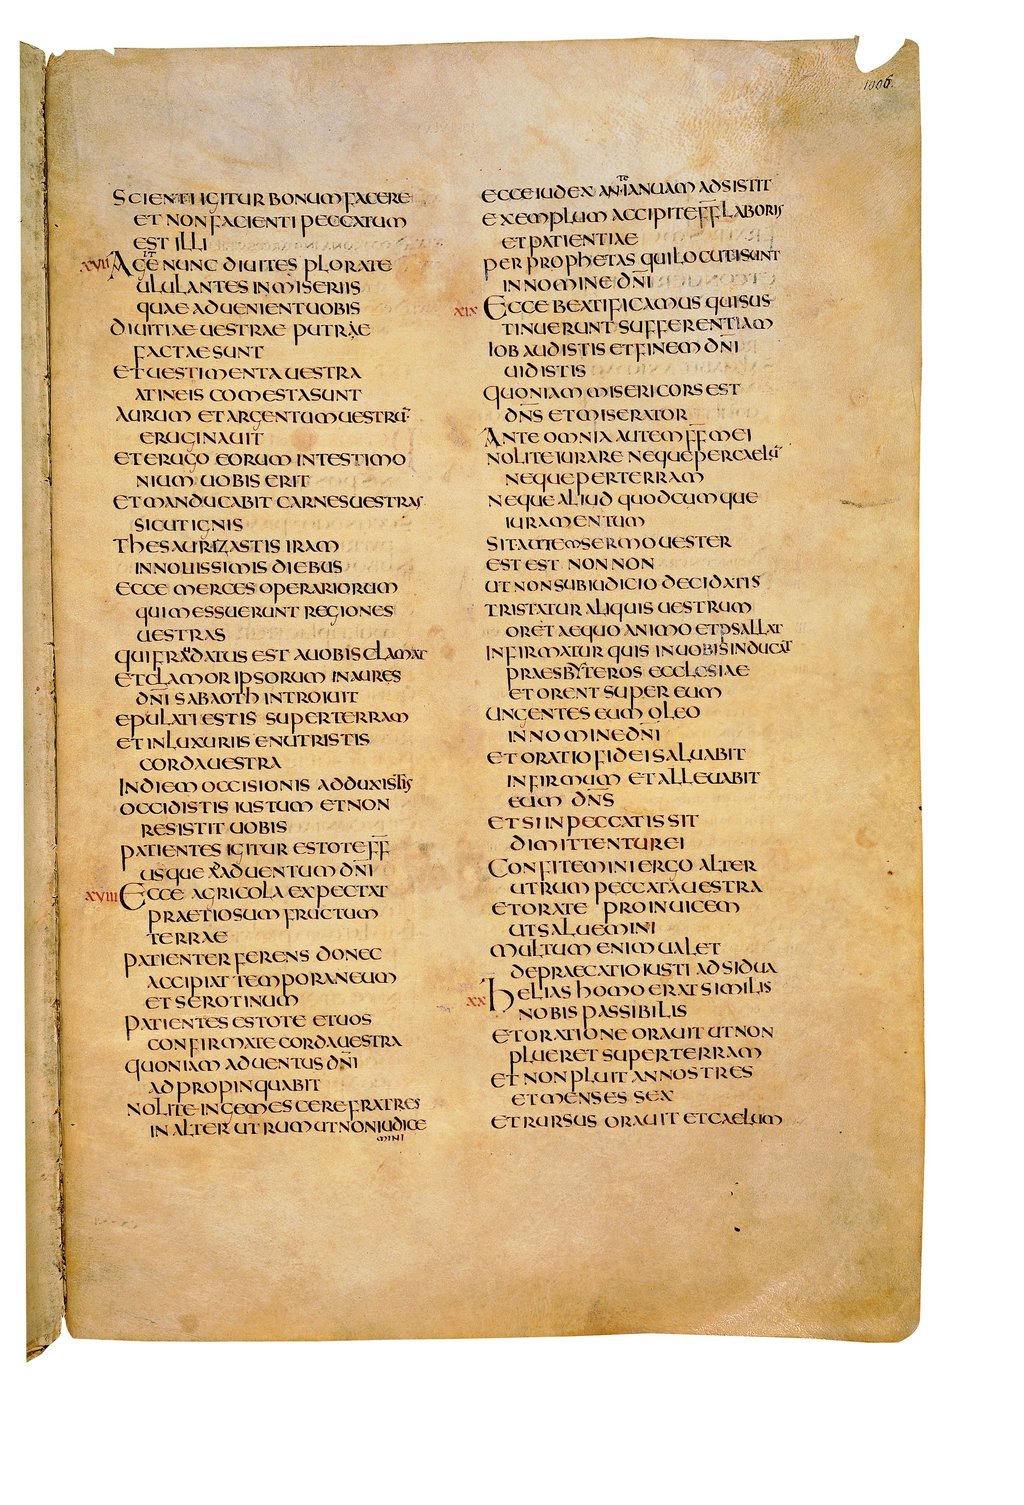 1006
SCIENTI IGITUR BONUM FACERE
ET NON FACIENTI PECCATUM
EST ILLI
XVII AGE NUNC DIUITES PLORATE
ULULANTES IN MISERIIS
QUAE ADUENIENT UOBIS
DIUITIAE UESTRAE PUTRAE
FACTAE SUNT
ET UESTIMENTA UESTRA
A TINEIS COMESTA SUNT
AURUM ET ARGENTUM UESTRŪ
ERUGINAUIT
ET ERUGO EORUM IN TESTIMO
NIUM UOBIS ERIT
ET MANDUCABIT CARNES UESTRAS
SICUT IGNIS
THESAURIZASTIS IRAM
IN NOUISSIMIS DIEBUS
ECCE MERCES OPERARIORUM
QUI MESSUERUNT REGIONES
UESTRAS
QUI FRAUDATUS EST A UOBIS CLAMAT
ET CLAMOR IPSORUM IN AURES
DNĪ SABAOTH INTROIUIT
EPULATI ESTIS SUPER TERRAM
ET IN LUXURIIS ENUTRISTIS
CORDA UESTRA
IN DIEM OCCISIONIS ADDUXISTIS
OCCIDISTIS IUSTUM ET NON
RESISTIT UOBIS
PATIENTES IGITUR ESTOTE F̄F̄
USQUE AD ADUENTUM DNĪ
XVIII ECCE AGRICOLA EXPECTAT
PRAETIOSUM FRUCTUM
TERRAE
PATIENTER FERENS DONEC
ACCIPIAT TEMPORANEUM
ET SEROTINUM
PATIENTES ESTOTE ET UOS
CONFIRMATE CORDA UESTRA
QUONIAM ADUENTUS DNĪ
ADPROPINQUABIT
NOLITE INGEMESCERE FRATRES
IN ALTERUTRUM UT NON IUDICE
MINI
ECCE IUDEX ANTE IANUAM ADSISTIT
EXEMPLUM ACCIPITE F̄F̄ LABORIS
ET PATIENTIAE
PER PROPHETAS QUI LOCUTI SUNT
IN NOMINE DNĪ
XIX ECCE BEATIFICAMUS QUI SUS
TINUERUNT SUFFERENTIAM
IOB AUDISTIS ET FINEM DNĪ
UIDISTIS
QUONIAM MISERICORS EST
DN̄S ET MISERATOR
ANTE OMNIA AUTEM F̄F̄ MEI
NOLITE IURARE NEQUE PER CAELŪ
NEQUE PER TERRAM
NEQUE ALIUD QUODCUMQUE
IURAMENTUM
SIT AUTEM SERMO UESTER
EST EST NON NON
UT NON SUB IUDICIO DECIDATIS
TRISTATUR ALIQUIS UESTRUM
ORET AEQUO ANIMO ET PSALLAT
INFIRMATUR QUIS IN UOBIS INDUCAT
PRAESBYTEROS ECCLESIAE
ET ORENT SUPER EUM
UNGENTES EUM OLEO
IN NOMINE DNĪ
ET ORATIO FIDEI SALUABIT
INFIRMUM ET ALLEUABIT
EUM DN̄S
ET SI IN PECCATIS SIT
DIMITTENTUR EI
CONFITEMINI ERGO ALTER
UTRUM PECCATA UESTRA
ET ORATE PRO INUICEM
UT SALUEMINI
MULTUM ENIM UALET
DEPRAECATIO IUSTI ADSIDUA
XX HELIAS HOMO ERAT SIMILIS
NOBIS PASSIBILIS
ET ORATIONE ORAUIT UT NON
PLUERET SUPER TERRAM
ET NON PLUIT ANNOS TRES
ET MENSES SEX
ET RURSUS ORAUIT ET CAELUM